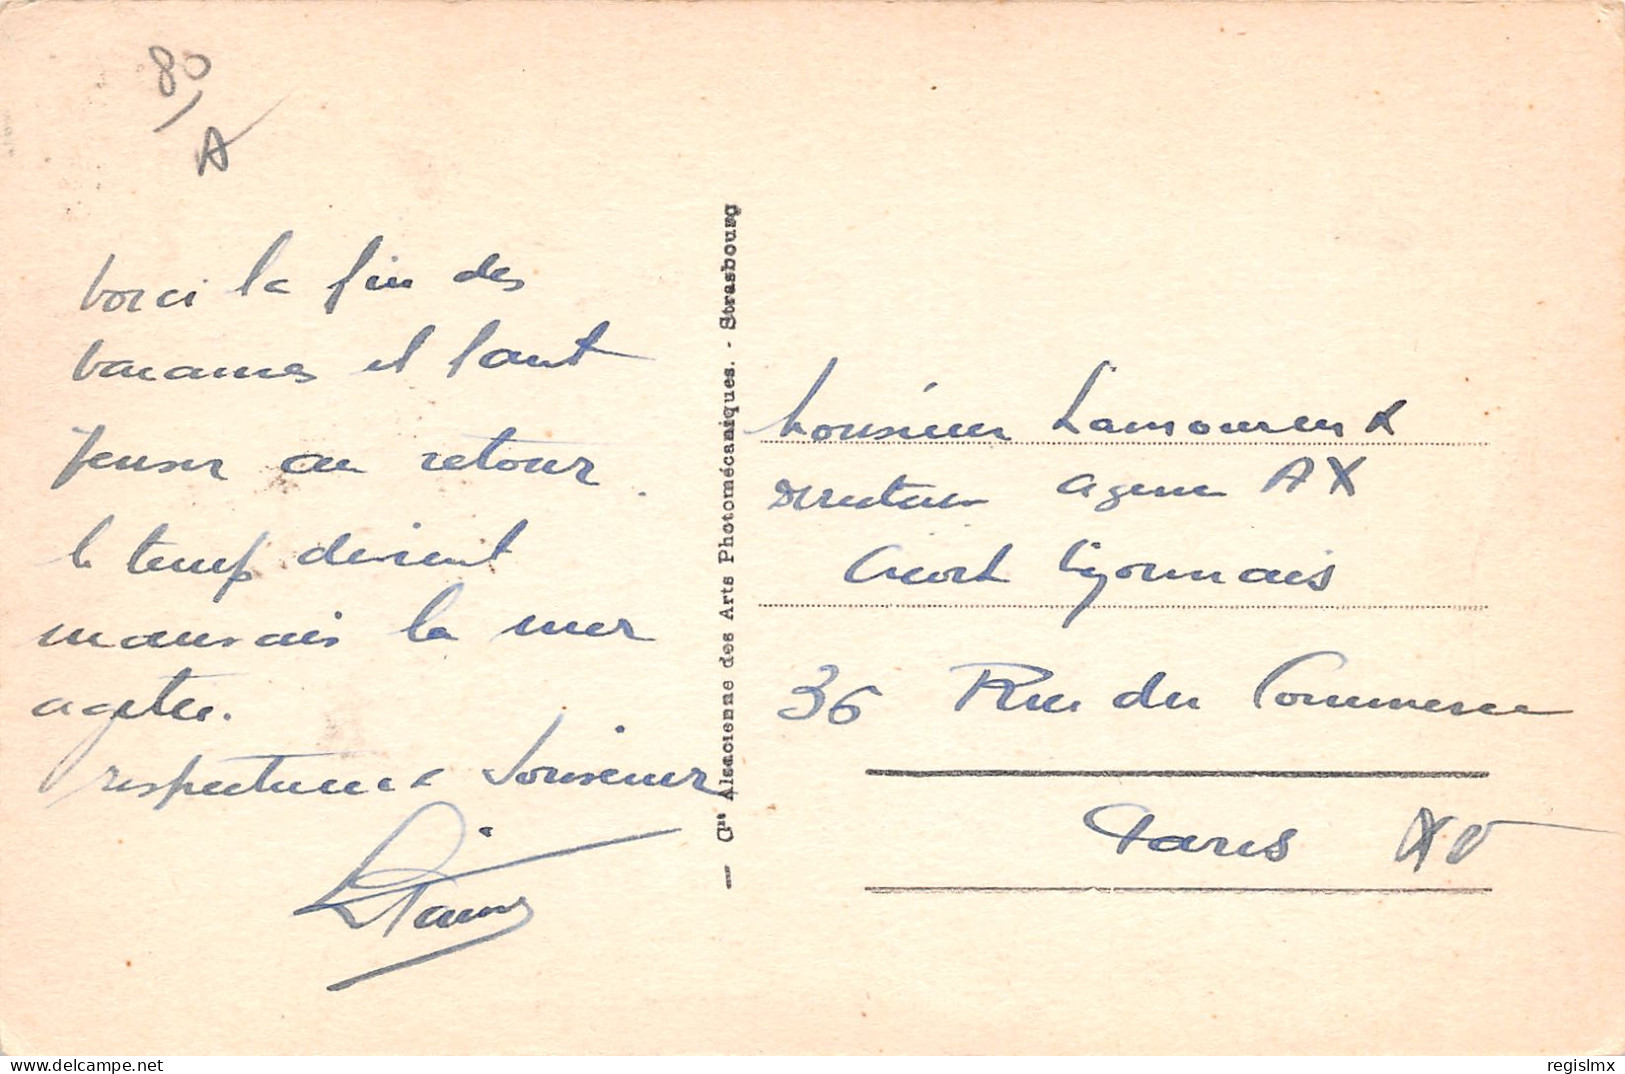 80
A
Voici la fin des
vacances il faut
penser au retour.
le temps devient
mauvais la mer
agitée.
respectueux souvenir
Cie Alsacienne des Arts Photomécaniques. - Strasbourg
Monsieur Lamoureux
directeur agence AX
Crédit Lyonnais
36 Rue du Commerce
Paris XV
delcampe.net
regislmx